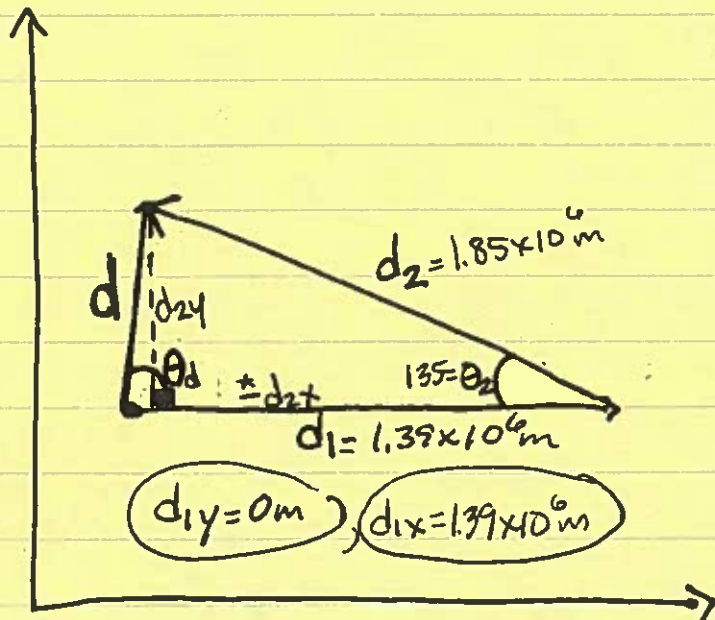 d₂=1.85×10⁶m
d
d₂y
θd
± d₂x
135=θ₂
d₁=1.39×10⁶m
d₁y=0m, d₁x=1.39×10⁶m